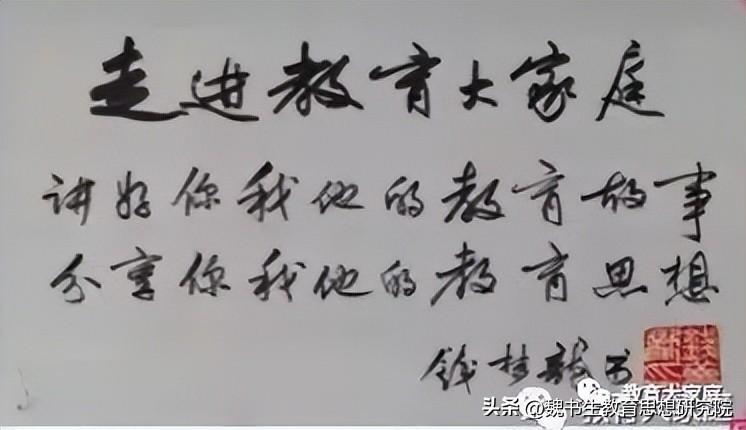 走进教育大家庭
讲好你我他的教育故事
分享你我他的教育思想
钱梦龙书
教育大家庭
头条 @魏书生教育思想研究院